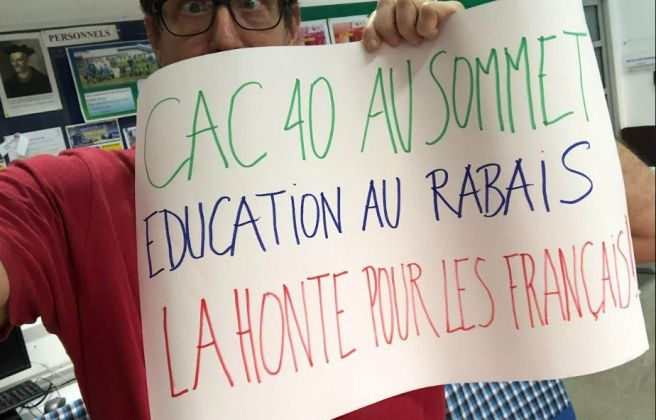 PERSONNELS
CAC 40 AU SOMMET
EDUCATION AU RABAIS
LA HONTE POUR LES FRANÇAIS!